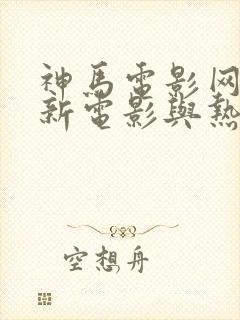 神馬電影网
新電影與熱
空想舟